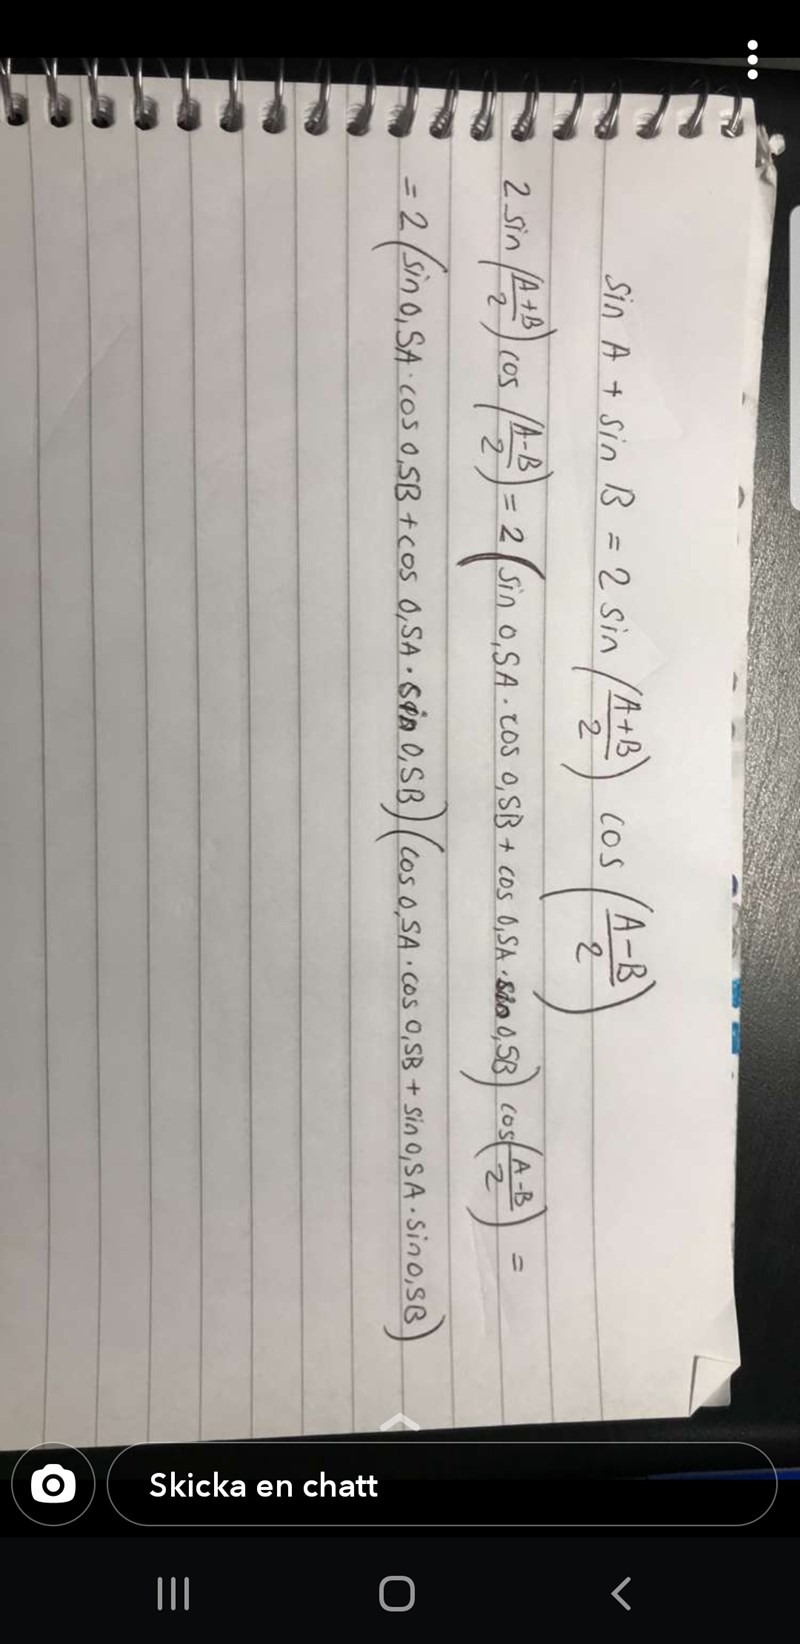 sin A + sin B = 2 sin (A+B/2) cos (A-B/2)
2 sin (A+B/2) cos (A-B/2) = 2 (sin 0,5A · cos 0,5B + cos 0,5A · sin 0,5B) cos (A-B/2) =
= 2 (sin 0,5A · cos 0,5B + cos 0,5A · sin 0,5B) (cos 0,5A · cos 0,5B + sin 0,5A · sin 0,5B)
Skicka en chatt